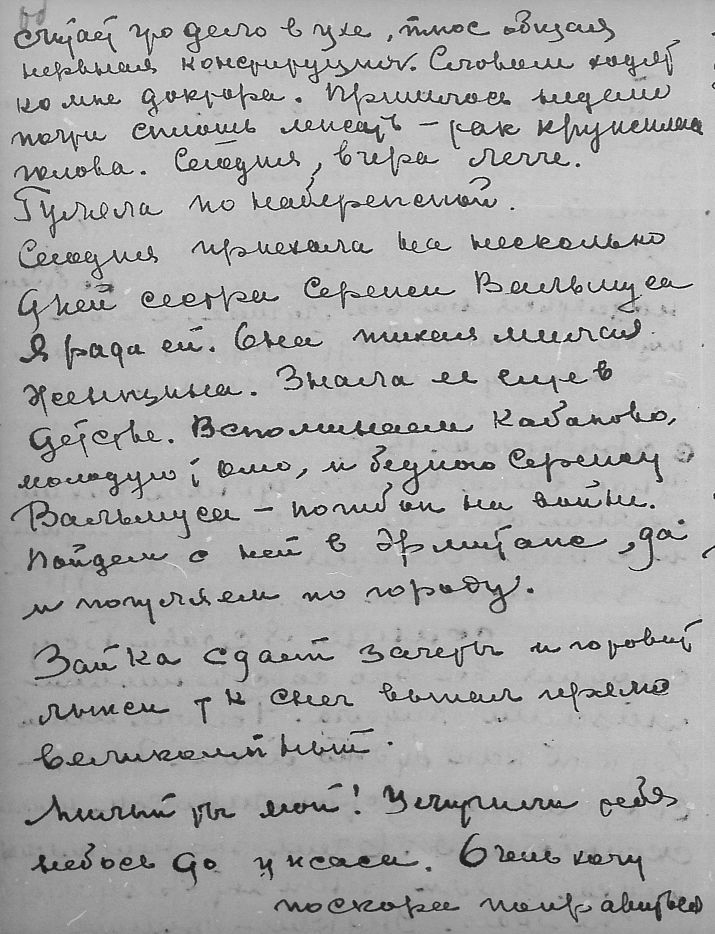 считает что дело в ухе, плюс общая
нервная конструкция. Словом ходят
ко мне доктора. Пришлось неделю
почти сплошь лежать – так кружилась
голова. Сегодня, вчера легче.
Гуляла по набережной.
Сегодня приехала на несколько
дней сестра Сережи Вальмуса
Я рада ей. Она такая милая
женщина. Знала ее еще в
детстве. Вспоминаем Кабаново,
молодую и бедного Сережу
Вальмуса – погиб он на войне.
Пойдем с ней в Эрмитаж, да
и погуляем по городу.
Зайка сдает зачеты и готовит
лыжи т к снег выпал прямо
великолепный.
Милый ты мой! Измучили тебя
небось до ужаса. Очень хочу
поскорей поправиться